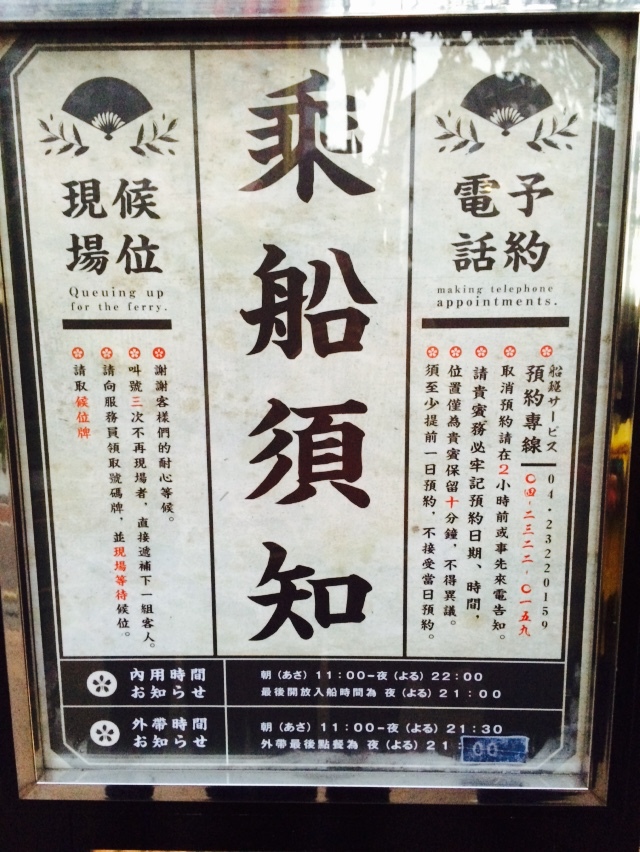 乘船須知
予約
電話
making telephone
appointments.
サービス 04.23220159
預約專線 〇四.二三二二.〇一五九
取消預約請在2小時前或事先來電告知。
請貴賓務必牢記預約日期、時間，
位置僅為貴賓保留十分鐘，不得異議。
須至少提前一日預約，不接受當日預約。
候位
現場
Queuing up
for the ferry.
謝謝客樣們的耐心等候。
叫號三次不再現場者，直接遞補下一組客人。
請向服務員領取號碼牌，並現場等待候位。
請取候位牌
內用時間
お知らせ
朝（あさ）11：00－夜（よる）22：00
最後開放入船時間為 夜（よる）21：00
外帶時間
お知らせ
朝（あさ）11：00－夜（よる）21：30
外帶最後點餐為 夜（よる）21：00